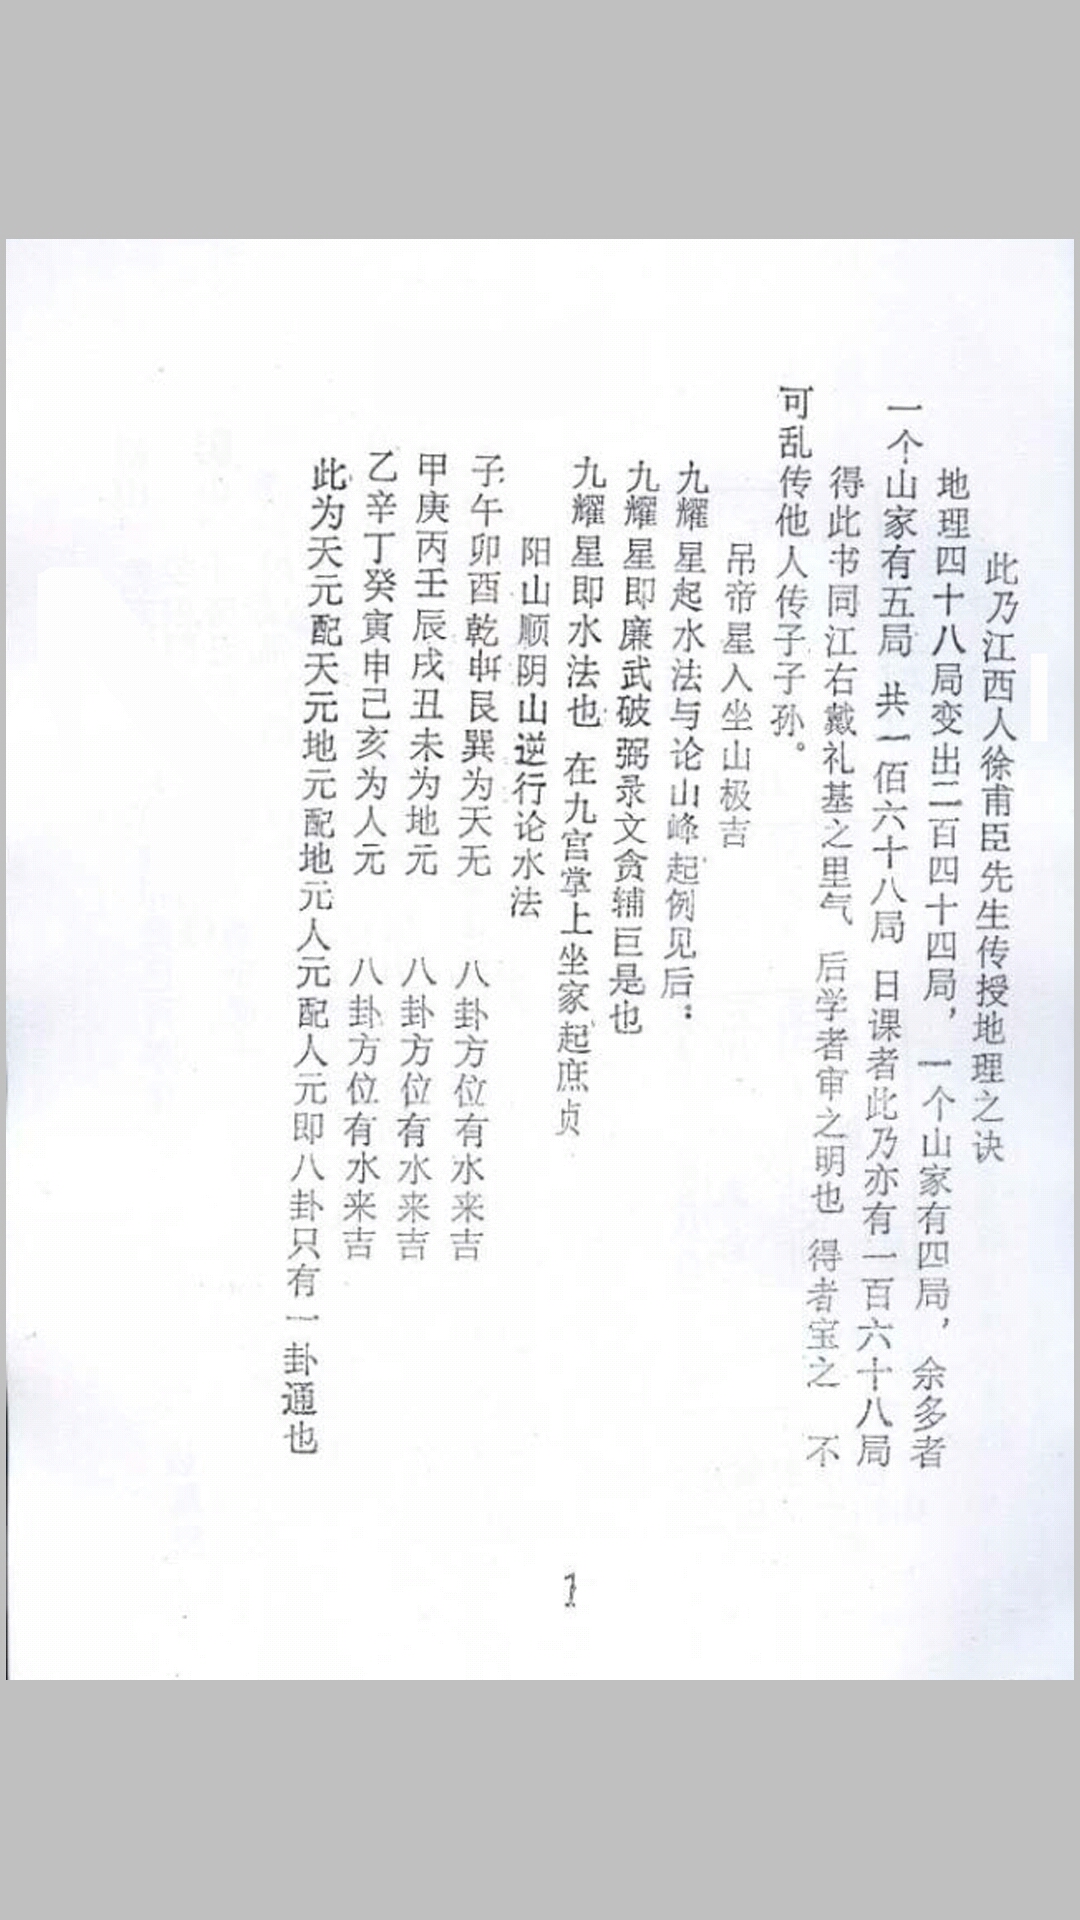 此乃江西人徐甫臣先生传授地理之诀
地理四十八局变出二百四十四局，一个山家有四局，余多者
一个山家有五局 共一佰六十八局 日课者此乃亦有一百六十八局
得此书同江右戴礼基之里气 后学者审之明也 得者宝之 不
可乱传他人传子子孙。
吊帝星入坐山极吉
九耀星起水法与论山峰起例见后：
九耀星即廉武破弼录文贪辅巨是也
九耀星即水法也 在九宫掌上坐家起庶贞
阳山顺阴山逆行论水法
子午卯酉乾艮巽为天无 八卦方位有水来吉
甲庚丙壬辰戌丑未为地元 八卦方位有水来吉
乙辛丁癸寅申己亥为人元 八卦方位有水来吉
此为天元配天元地元配地元人元配人元即八卦只有一卦通也
1